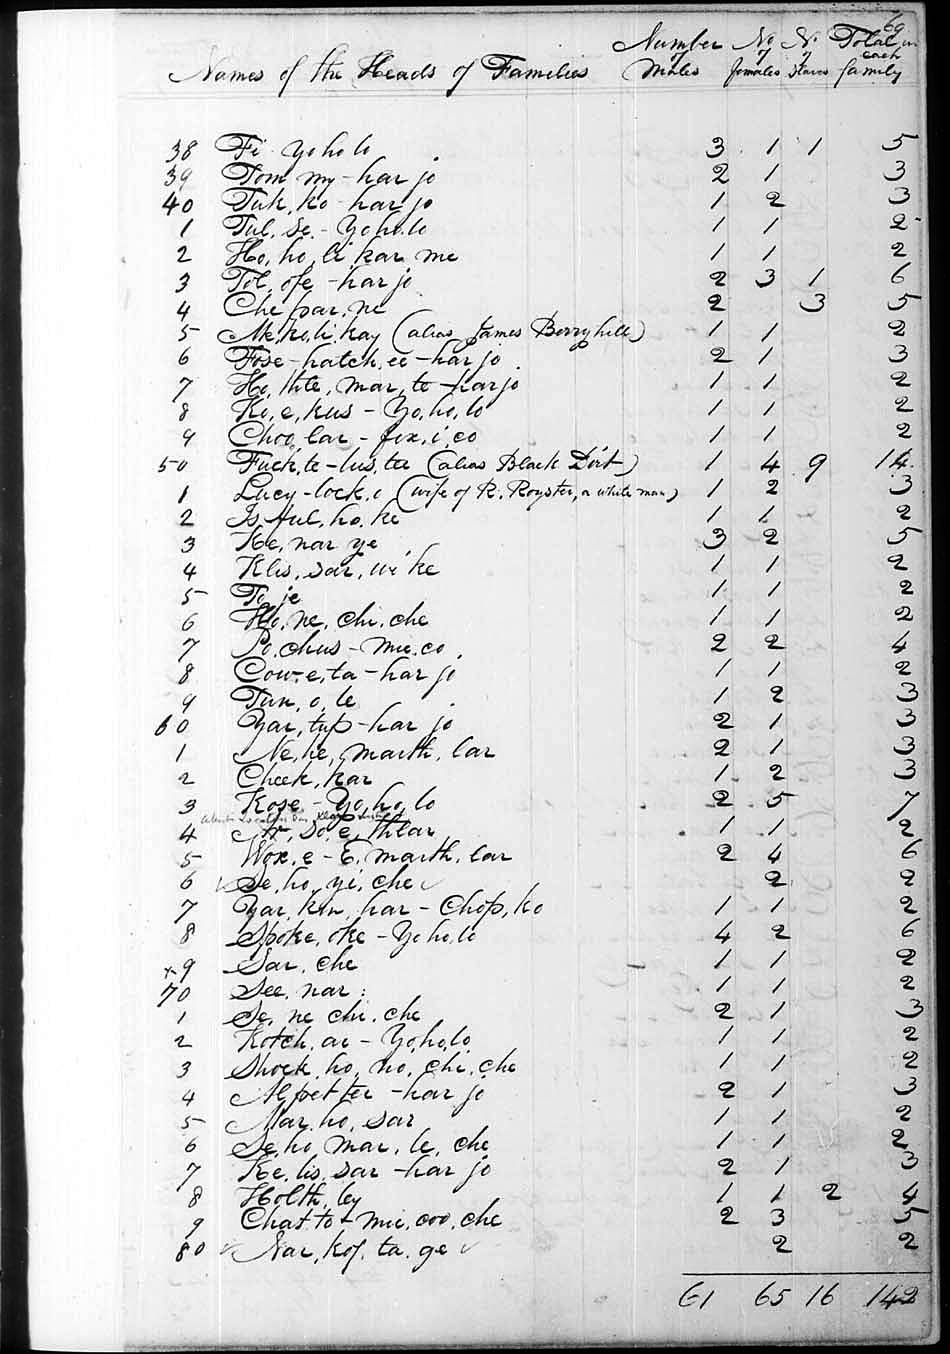 69
Names of the Heads of Families Number of Males No of females No of Slaves Total in each family
38 Fi Yo ho lo 3 1 1 5
39 Tom my-har jo 2 1 3
40 Tuk, ko-har jo 1 2 3
1 Tul, se,-Yo ho. lo 1 1 2
2 Ho, ho, li kar me 1 1 2
3 Tol, ofe-har jo 2 3 1 6
4 Che par, ne 2 3 5
5 Ne, ko, li kay (alias James Berryhill) 1 1 2
6 Fose-hatch, ee-har jo 2 1 3
7 Ho, thle, mar, te-harjo 1 1 2
8 Ko, e, kus-Yo, ho, lo 1 1 2
9 Choo, lar-fix, i, co 1 1 2
50 Fuck, te-lus, ter (alias Black Dirt) 1 4 9 14
1 Lucy-lock, o (wife of R. Royster, a white man) 1 2 3
2 Is Hul, ho, ke 1 1 2
3 Ke, nar ye 3 2 5
4 Klis, sar, wi ke 1 1 2
5 To, je 1 1 2
6 Ho, ne, chi, che 1 1 2
7 Po, chus-mic, co 2 2 4
8 Cow-e, ta-har jo 1 1 2
9 Tun, o, le 1 2 3
60 Yar, tup-har jo 2 1 3
1 Ne, he, marth, lar 2 1 3
2 Cheek, kar 1 2 3
3 Kose-Yo, ho, lo 2 5 7
4 So, e, Thlar 1 1 2
5 Wox, e-E, marth, lar 2 4 6
6 Se, ho, yi, che 2 2
7 Yar, kin, har-Chop, ko 1 1 2
8 Spoke, oke-Yo ho, lo 4 2 6
x9 Sar, che 1 1 2
70 See, nar 1 1 2
1 Se, ne chi, che 2 1 3
2 Kotch, ar-Yo, ho, lo 1 1 2
3 Shock, ho, no, chi, che 1 1 2
4 Al pet ter-har jo 2 1 3
5 Mar, ho, sar 1 1 2
6 Se, ho, mar, le, che 1 1 2
7 Ke, lis, sar-har jo 2 1 3
8 Holth, ley 1 1 2 4
9 Chat to-mic, coo, che 2 3 5
80 Nar, kof, ta, ge 2 2
61 65 16 142